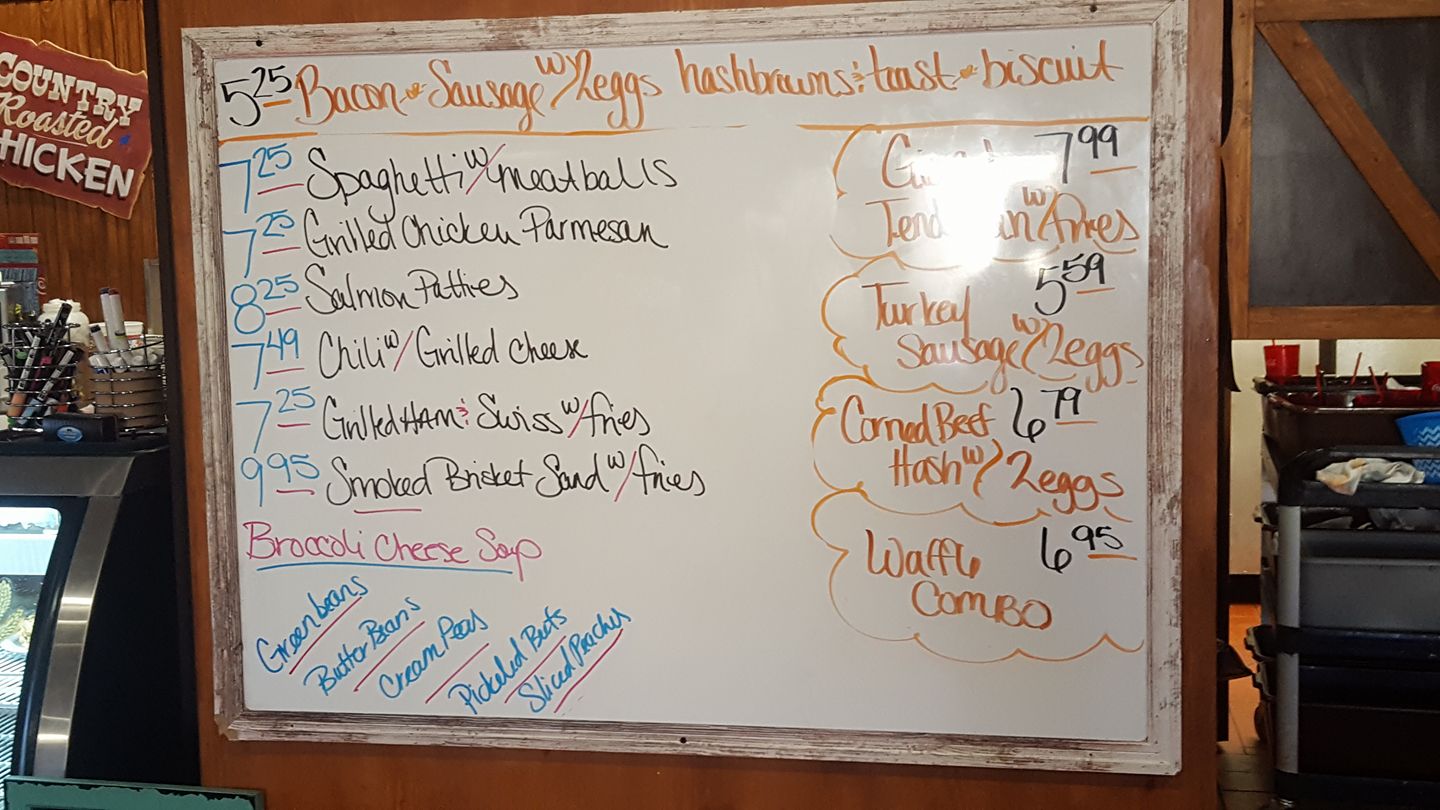 COUNTRY
Roasted
CHICKEN
5.25 Bacon or Sausage w/ 2eggs hashbrowns & toast or biscuit
7.25 Spaghetti w/ meatballs
7.25 Grilled Chicken Parmesan
8.25 Salmon Patties
7.49 Chili w/ Grilled Cheese
7.25 Grilled HAM & Swiss w/ fries
9.95 Smoked Brisket Sand w/ fries
Broccoli Cheese Soup
Green beans
Butter Beans
Cream Peas
Pickeled Beets
Sliced Peaches
7.99
w/ fries
Turkey 5.59
Sausage w/ 2eggs
Corned Beef 6.79
Hash w/ 2eggs
Waffle 6.95
COMBO